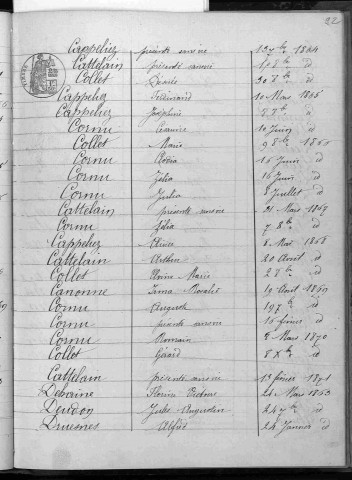 22
Cappeliez présenté sans vie 12 7bre 1864
Cattelain présenté sans vie 10 8bre id
Collet Désirée 30 8bre id
Cappeliez Ferdinand 10 Mars 1865
Cappeliez Joséphine
Cornu 10 Juin id
Collet Marie 9 8bre 1866
Cornu 16 Juin id
Cornu Zélia 16 Juin id
Cornu Julia 8 Juillet id
Cattelain présenté sans vie 21 Mars 1867
Cornu Zélia 7 8bre id
Cappeliez Aimée 8 Mai 1868
Cattelain Arthur 20 Avril id
Collet Marie 28 8bre id
Canonne Irma Rosalie 19 Avril 1869
Cornu August 19 7bre id
Cornu présenté sans vie 16 févier id
Cornu Romain 2 Mars 1870
Collet Gérard 8 Xbre id
Cattelain présenté sans vie 1er février 1871
Debaine Florin Victor 21 Mars 1863
Deudon Jules Augustin 24 7bre id
Druesnes Alfred 24 Janvier id